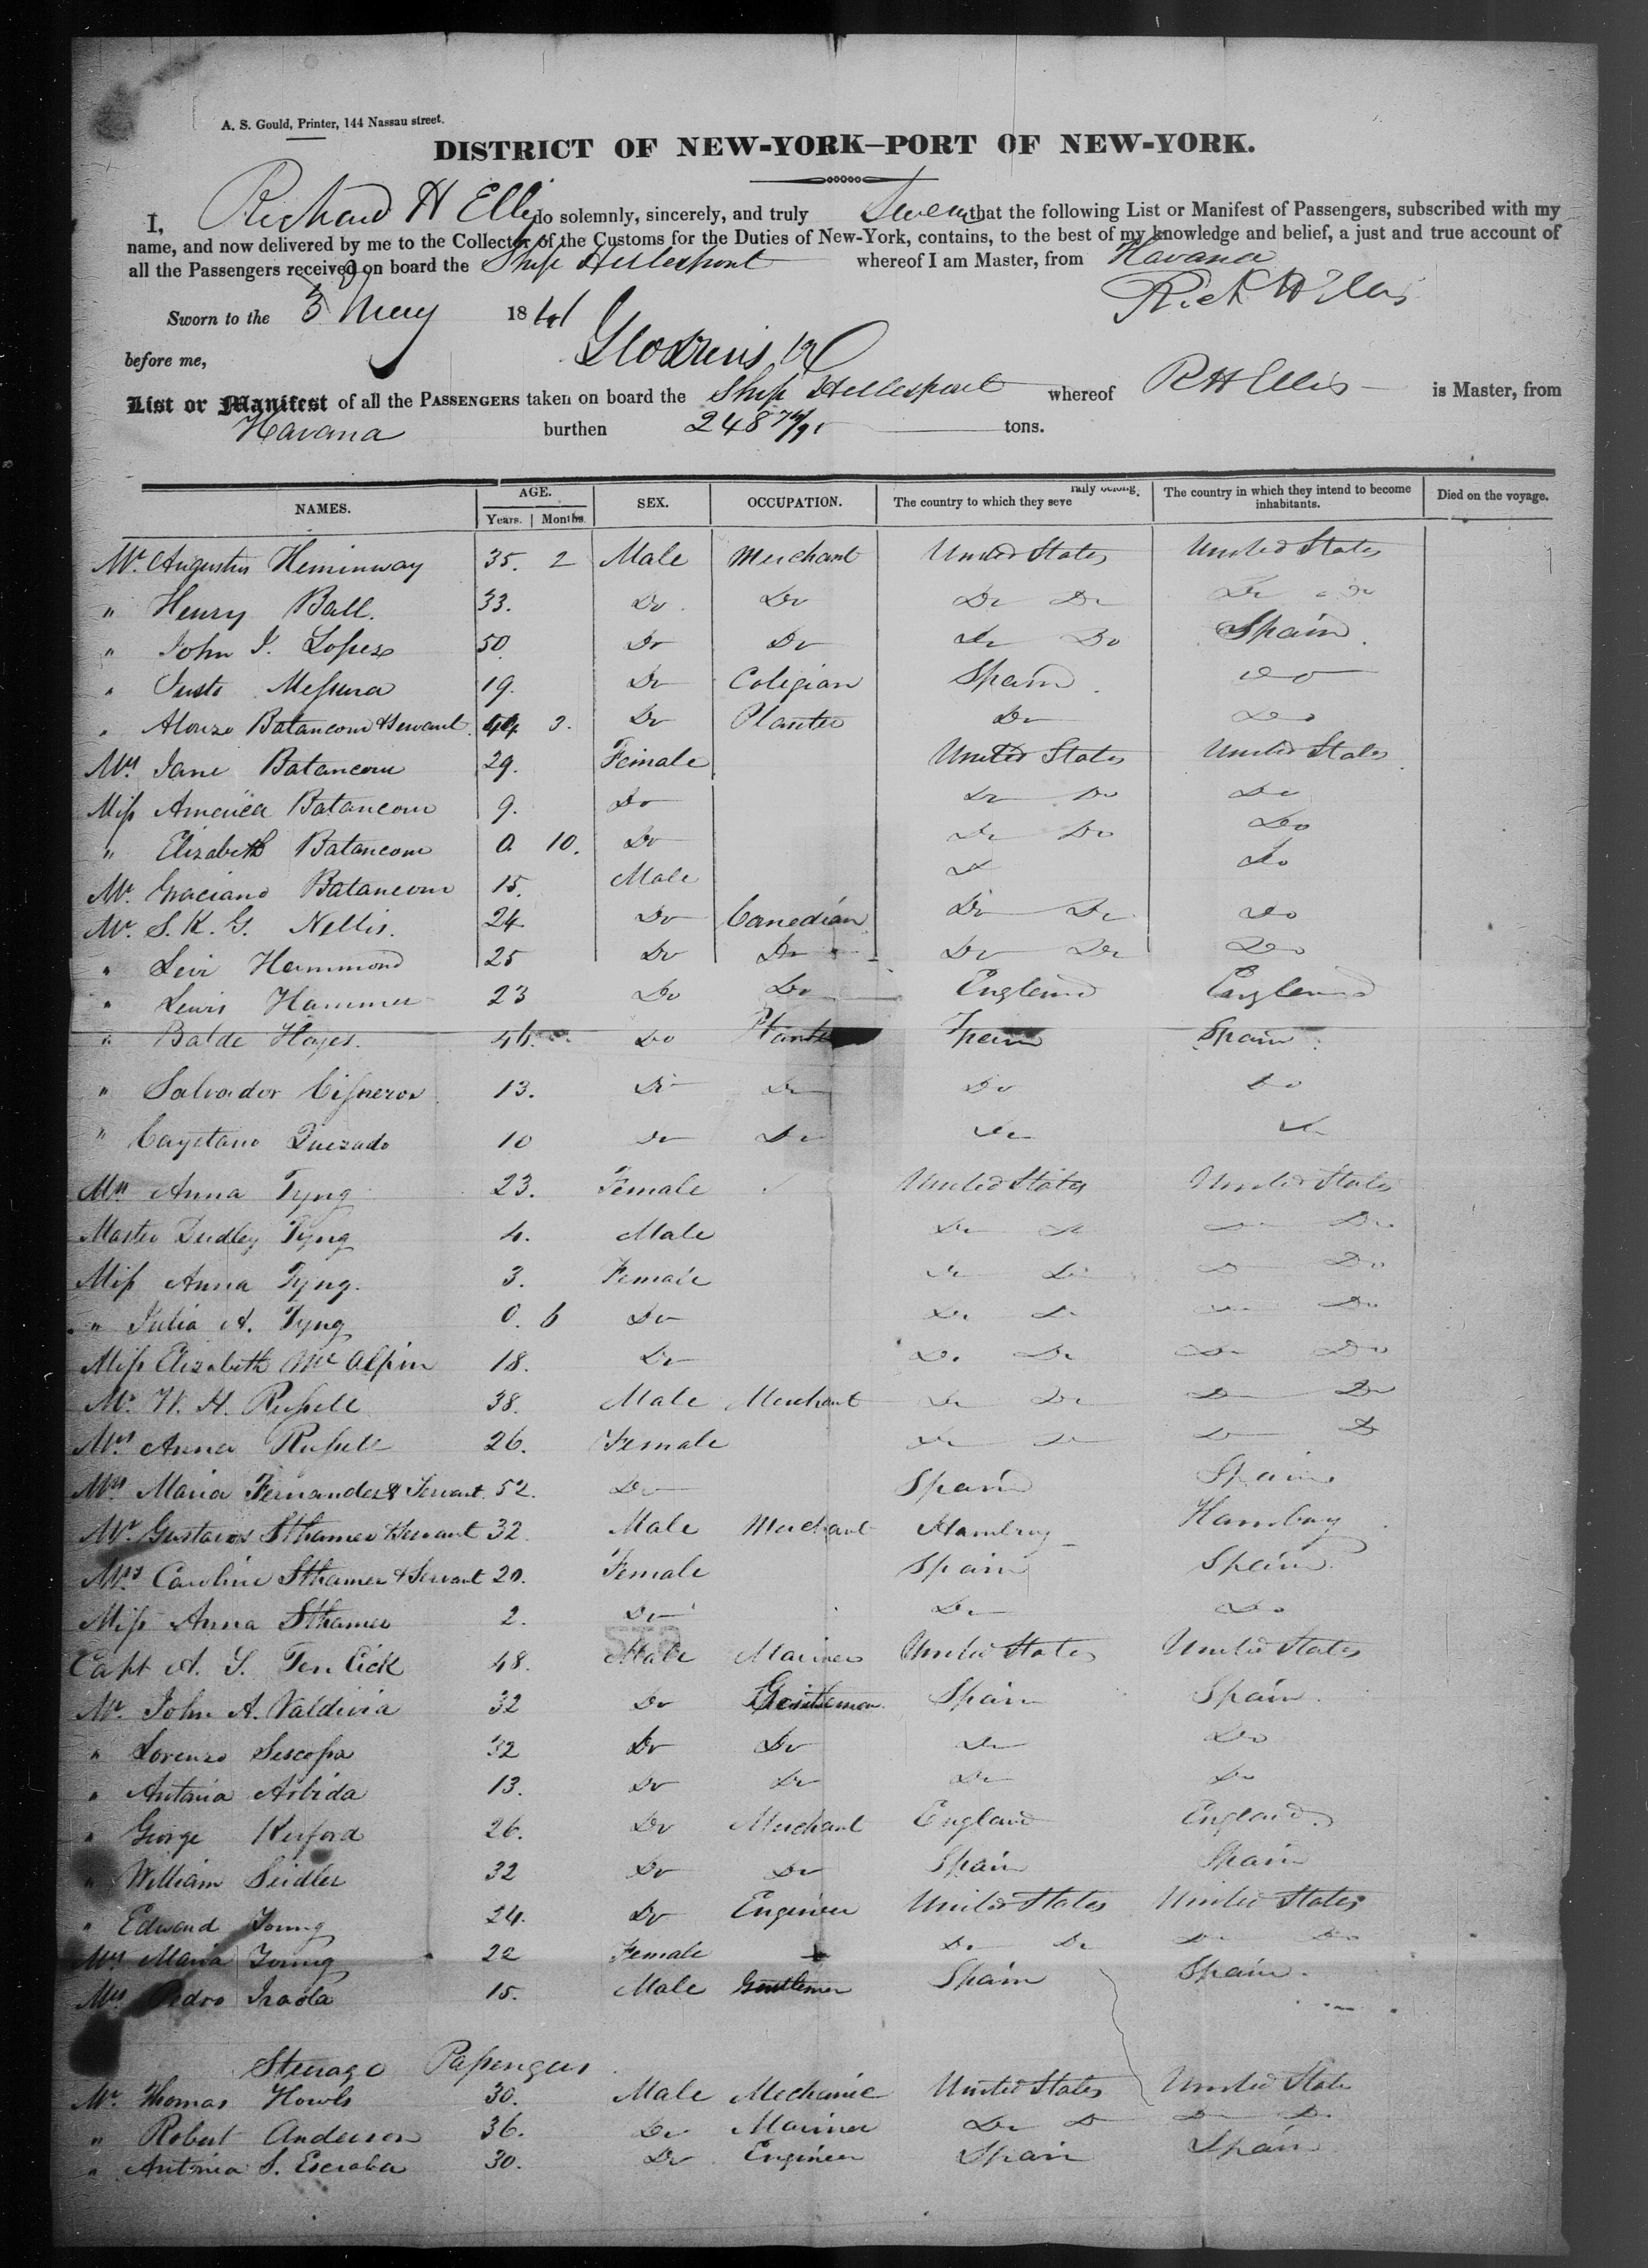 A. S. Gould, Printer, 144 Nassau street.
DISTRICT OF NEW-YORK—PORT OF NEW-YORK.
I, Richard H Ellis do solemnly, sincerely, and truly Swear that the following List or Manifest of Passengers, subscribed with my
name, and now delivered by me to the Collector of the Customs for the Duties of New-York, contains, to the best of my knowledge and belief, a just and true account of
all the Passengers received on board the Ship Hellespont whereof I am Master, from Havana
Sworn to the 3 May 1841 Rich H Ellis
before me,
List or Manifest of all the PASSENGERS taken on board the Ship Hellespont whereof R H Ellis is Master, from
Havana burthen 248 tons.
NAMES. AGE. Years. Months. SEX. OCCUPATION. The country to which they seve rally belong. The country in which they intend to become inhabitants. Died on the voyage.
Mr. Augustus Heminway 35. 2 Male Merchant United States United States
" Henry Ball. 33. Do Do Do Do Do Do
" John J. Lopez 50 Do Do Do Do Spain
" Justo Messura 19. Do Colegian Spain Do
" Alonzo Batancour & Servant 44 3. Do Planter Do Do
Mrs Jane Batancour 29. Female United States United States
Miss America Batancour 9. Do Do Do Do
" Elizabeth Batancour 0 10. Do Do Do Do
Mr. Graciano Batancour 15. Male Do Do
Mr. S. K. G. Nellis. 24 Do Comedian Do Do Do
" Levi Hammond 25 Do Do Do Do Do
" Lewis Hammer 23 Do Do England England
" Balde Hayes. Do Planter Spain Spain
" Salvador Cisneros 13. Do Do Do Do
" Cayetano Quezado 10 Do Do Do Do
Mrs Anna Tyng 23. Female United States United States
Master Dudley Tyng 4. Male Do Do Do Do
Miss Anna Tyng. 3. Female Do Do Do Do
" Julia A. Tyng 0. 6 Do Do Do Do Do
Miss Elizabeth McAlpin 18. Do Do Do Do Do
Mr. W. H. Russell 38. Male Merchant Do Do Do Do
Mrs. Anna Russell 26. Female Do Do Do Do
Mrs Maria Fernandez & Servant. 52. Do Spain Spain
Mr. Gustavos Sthamer & Servant 32. Male Merchant Hamburg Hamburg
Mrs Caroline Sthamer & Servant 20. Female Spain Spain
Miss Anna Sthamer 2. Do Do Do
Capt A. S. Ten Eick 48. Male Mariner United States United States
Mr. John A. Valdivia 32 Do Gentleman Spain Spain
" Lorenzo 32 Do Do Do Do
" Antonia Arbida 13. Do Do Do Do
" George Kerford 26. Do Merchant England England
" William Seidler 32 Do Do Spain Spain
" Edward Young 24. Do Engineer United States United States
Mrs Maria Young 22 Female Do Do Do Do
Pedro Iraola 15. Male Gentleman Spain Spain
Steerage Passengers
Mr. Thomas Howls 30. Male Mechanic United States United State
" Robert Anderson 36. Do Mariner Do Do Do Do
" Antonia S. Escobar 30. Do Engineer Spain Spain